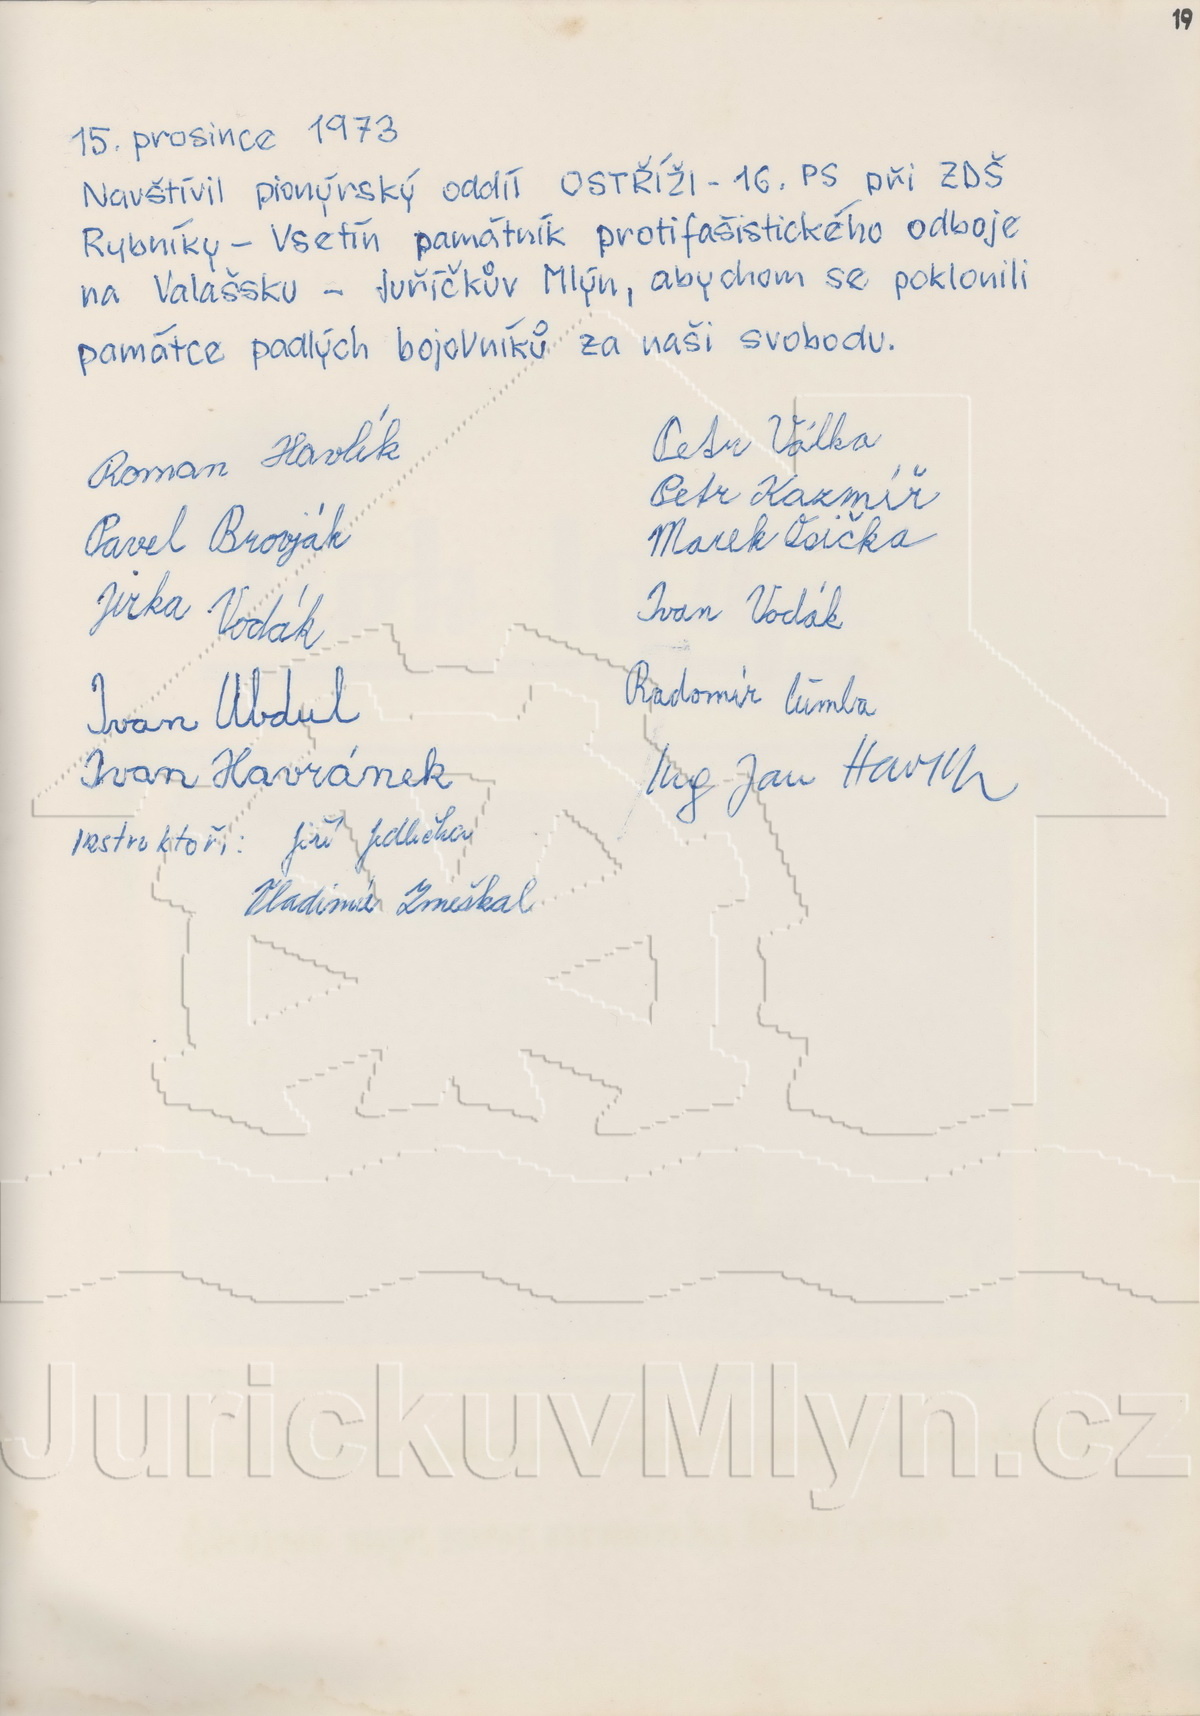 19
15. prosince 1973
Navštívil pionýrský oddíl OSTŘÍŽI - 16. PS při ZDŠ
Rybníky - Vsetín památník protifašistického odboje
na Valašsku - Juříčkův Mlýn, abychom se poklonili
památce padlých bojovníků za naši svobodu.
Roman Havlík
Pavel
Jirka Vodák
Ivan Abdul
Ivan Havránek
Petr Válka
Petr Kazmíř
Marek
Ivan Vodák
Radomír
Ing Jan
Instruktoři: Jiří Jedlička
Vladimír Zmeškal
JurickuvMlyn.cz